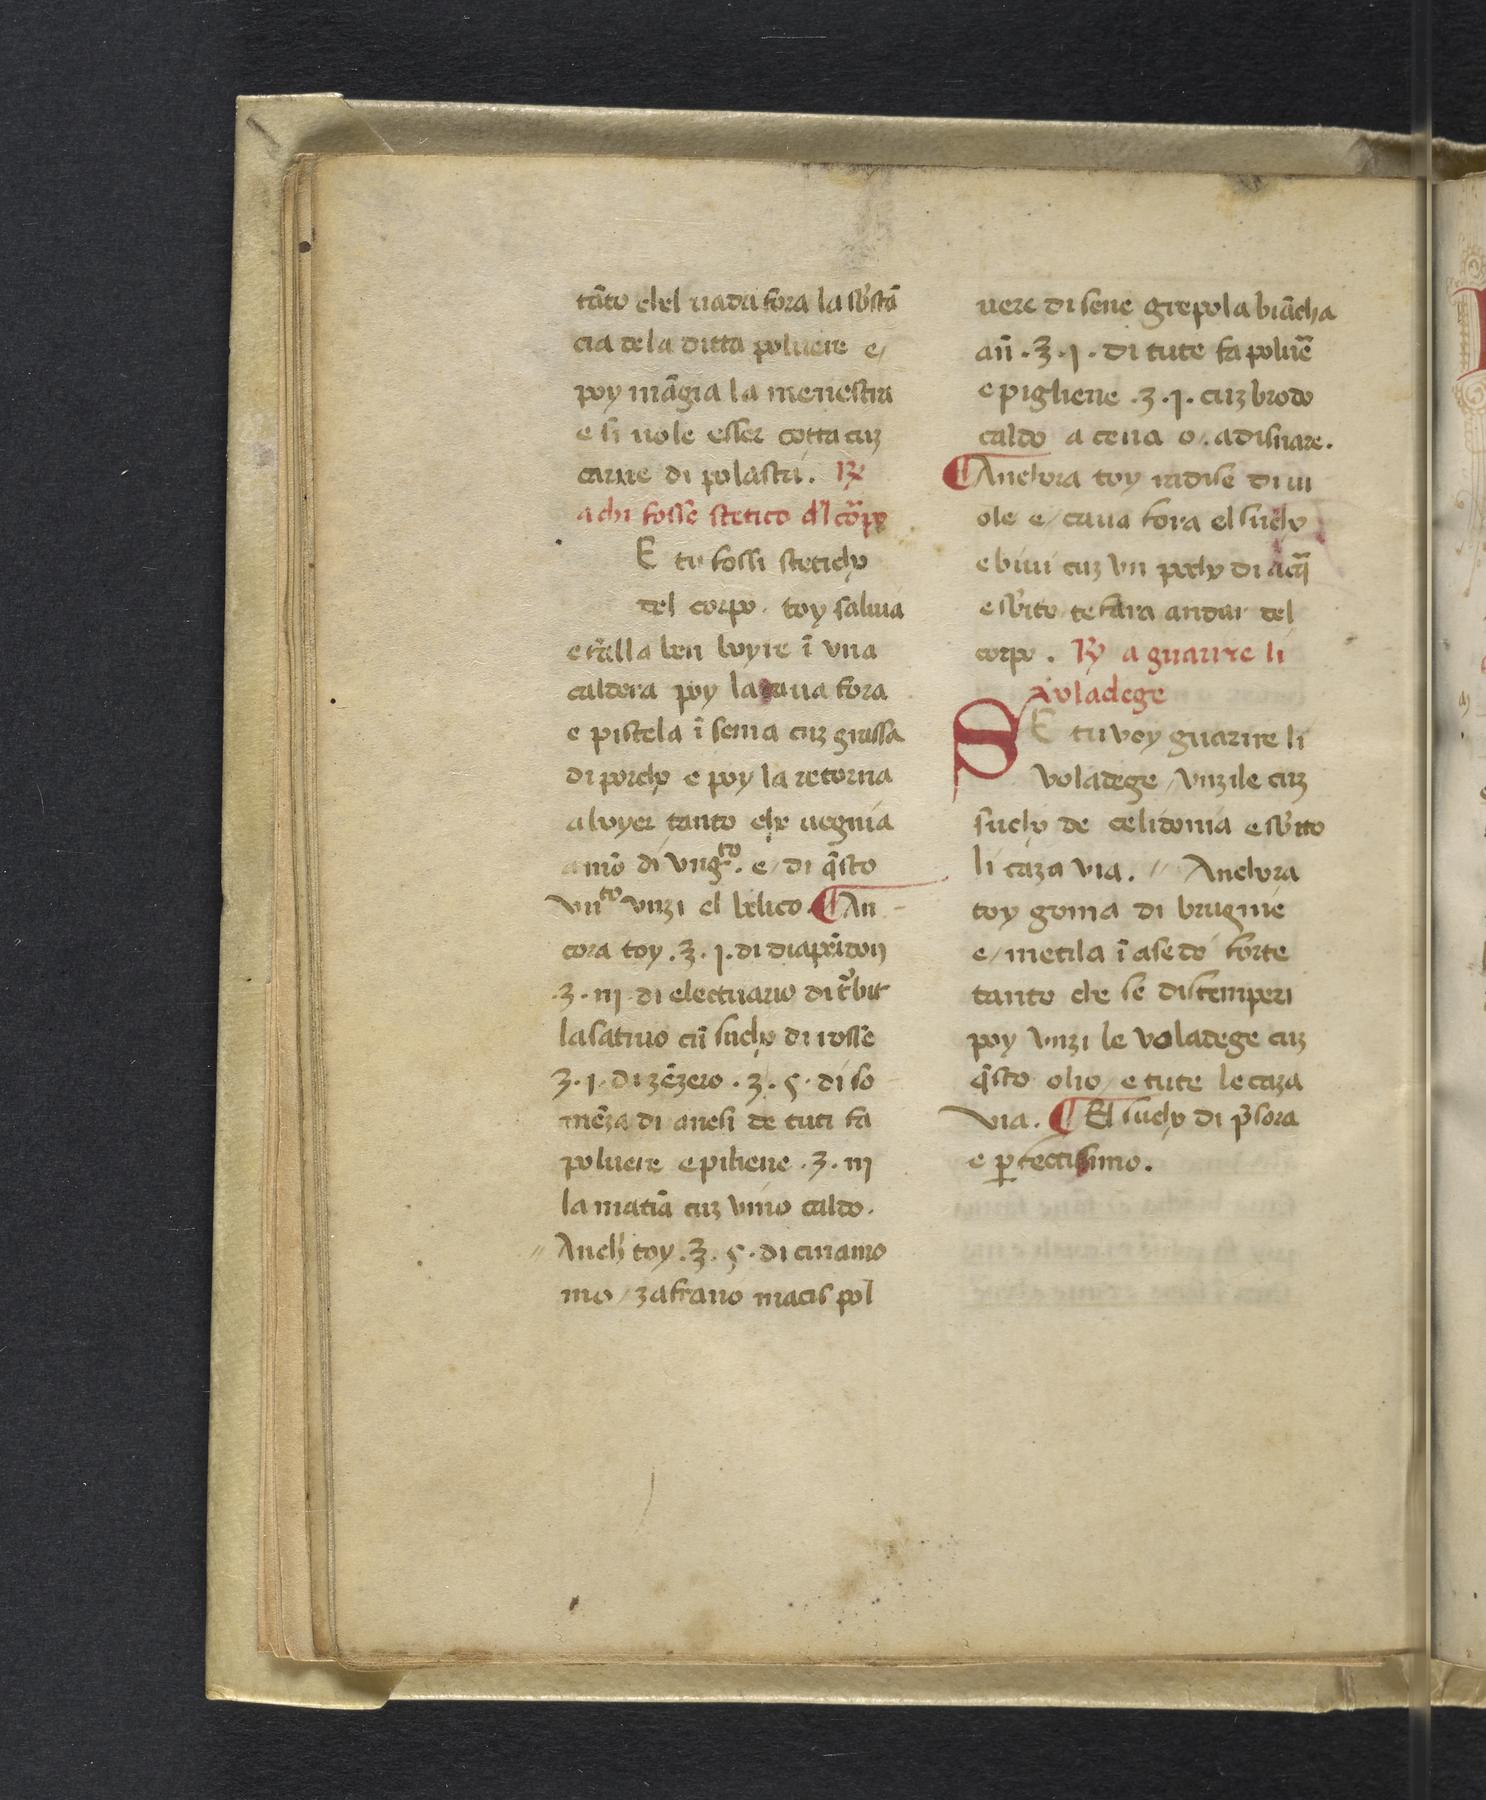 tãto chel uada fora la sb̾stã
cia de la ditta poluere e/
poy mãgia la menestra
e si uole esser cotta cuʒ
carne di polastri. ℞
a chi fosse stetico dl̾ cõrpo
E tu fossi steticho
del corpo. toy saluia
e falla ben boyre ĩ una
caldera poy la caua fora
e pistela ĩ sema cuʒ grassa
di porcho e poy la retorna
a boyer tanto che uegnia
a mõ di vngto. e/ di q̃sto
vnto vnzi el belico. ¶ An
cora toy .ʒ. j. di diaprũdon
.ʒ. iij di electuario di t̾bit
lasatiuo cũ sucho di rosse
ʒ. j. di zẽzero .ʒ. ς. di so
mẽza di anesi de tuti fa
poluere e piliene .ʒ. iij
la matiã cuʒ vino caldo.
// Anch̾ toy .ʒ. ς. di cinamo
mo / zafrano macis pol
uere di sene grepola biãcha
añ .ʒ. j. di tute fa poluẽ
e pigliene .ʒ. j. cuʒ brodo
caldo a cena o. a disnare.
¶ Anchora toy radise di ui
ole e/ caua fora el sucho
e biui cuʒ vn pocho di acq̃
e sb̾ito te fara andar del
corpo. ℞ a guarire li
Auladege
SE tu voy guarire li
voladege / vnzile cuʒ
sucho de celidonia e sb̾ito
li caza via. // Anchora
toy goma di brugnie
e/ metila ĩ asedo forte
tanto che se distemperi
poy vnzi le voladege cuʒ
q̃sto olio / e tute le caza
via. ¶ El sucho di p̃sora
e ꝑfectissimo.